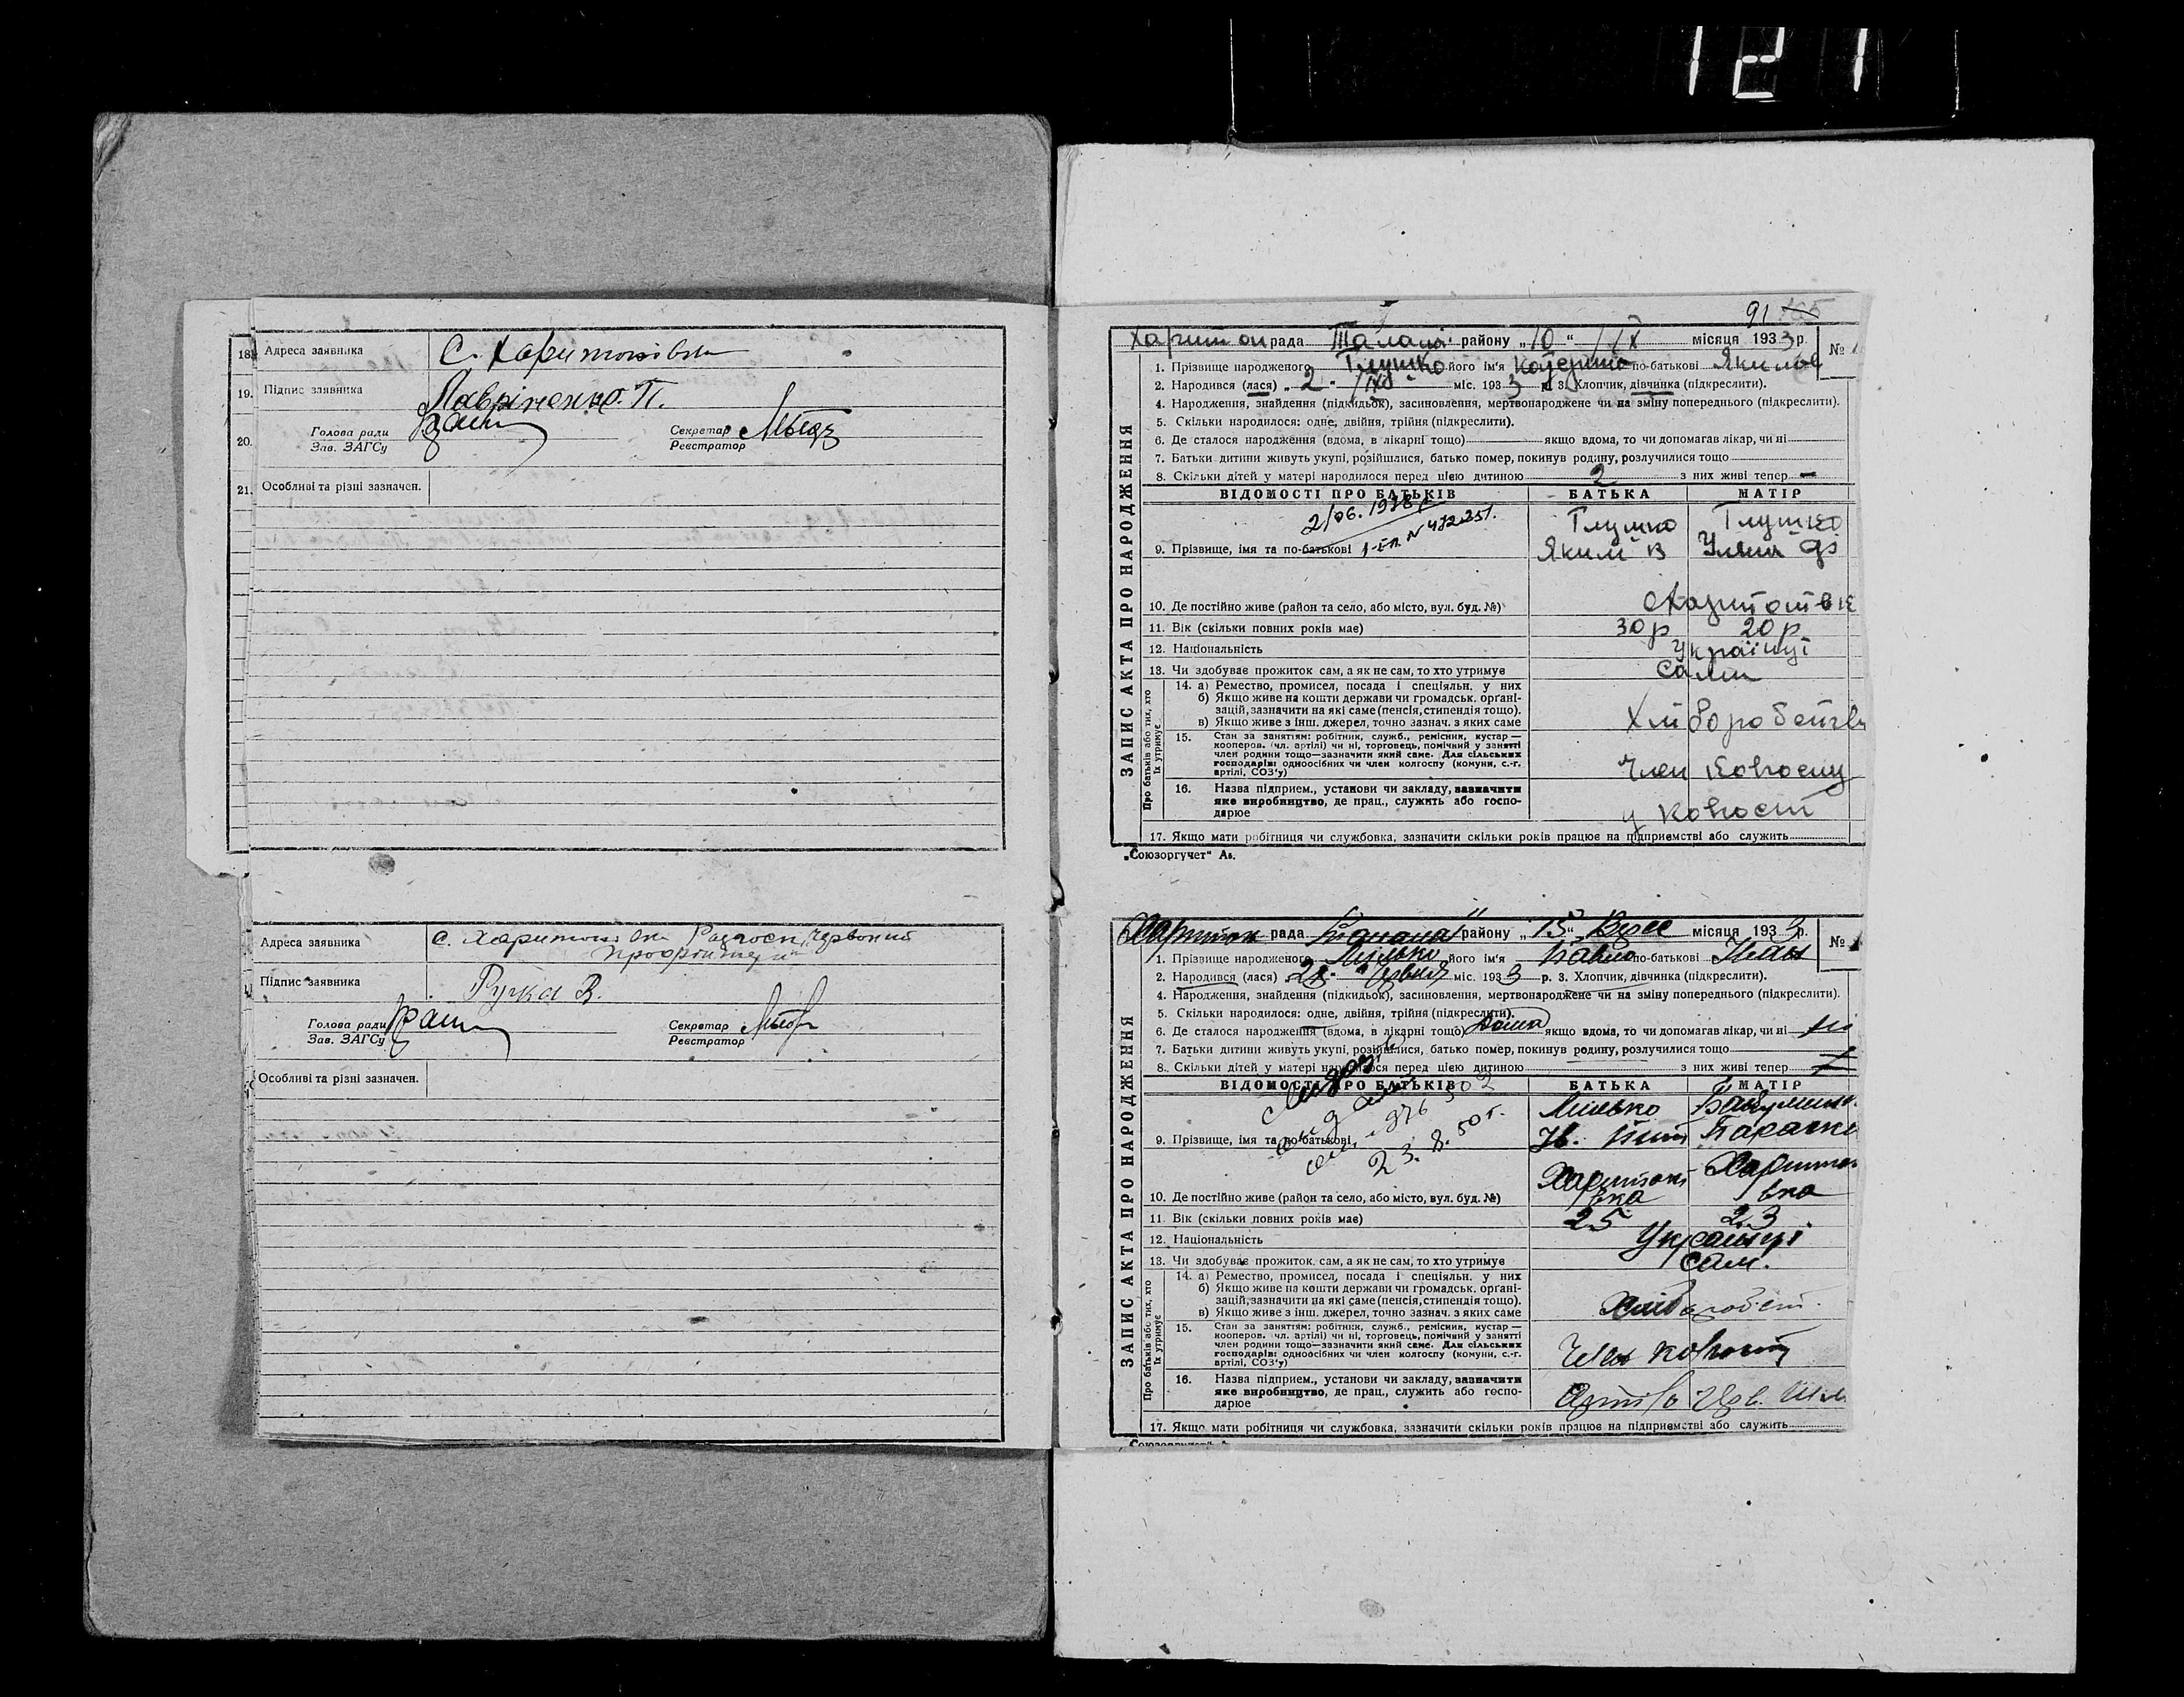 121
18. Адреса заявника С. Харитонівки
19. Підпис заявника Лавріненко. П.
20. Голова ради Зав. ЗАГСу Секретар Реєстратор
21. Особливі та різні зазначен.
Адреса заявника с. Харитонівка Радгосп Червоний
Підпис заявника Ручка В.
Голова ради Зав. ЗАГСу Секретар Реєстратор
Особливі та різні зазначен.
91
Харитон рада Талалаї району „10“ IX місяця 1933 р. №
1. Прізвище народженого Глушко його ім'я Катерина по-батькові Якимов
2. Народився (лася) „2. IX міс. 1933 р. 3. Хлопчик, дівчинка (підкреслити).
4. Народження, знайдення (підкидьок), засиновлення, мертвонароджене чи на зміну попереднього (підкреслити).
5. Скільки народилося: одне, двійня, трійня (підкреслити).
6. Де сталося народження (вдома, в лікарні тощо) якщо вдома, то чи допомагав лікар, чи ні
7. Батьки дитини живуть укупі, розійшлися, батько помер, покинув родину, розлучилися тощо
8. Скільки дітей у матері народилося перед цією дитиною 2 з них живі тепер —
ЗАПИС АКТА ПРО НАРОДЖЕННЯ
ВІДОМОСТІ ПРО БАТЬКІВ БАТЬКА МАТІР
2/06. 1978 р
І-ЕП N 472251.
Глушко Глушко
9. Прізвище, імя та по-батькові Яким В Уляна
10. Де постійно живе (район та село, або місто, вул. буд. №)
11. Вік (скільки повних років має) 30 р 20 р.
12. Національність Українці
13. Чи здобуває прожиток сам, а як не сам, то хто утримує Сами
Про батьків або тих, хто їх утримує
14. а) Ремество, промисел, посада і спеціяльн. у них
б) Якщо живе на кошти держави чи громадськ. органі-
зацій, зазначити на які саме (пенсія, стипендія тощо).
в) Якщо живе з інш. джерел, точно зазнач. з яких саме Хліборобств
15. Стан за заняттям: робітник, служб., ремісник, кустар —
кооперов. (чл. артілі) чи ні, торговець, помічний у занятті
член родини тощо—зазначити який саме. Для сільських
господарів: одноосібних чи член колгоспу (комуни, с.-г.
артілі, СОЗ'у) Член колгоспу
16. Назва підприєм., установи чи закладу, зазначити
яке виробництво, де прац., служить або госпо-
дарює у колгоспі
17. Якщо мати робітниця чи службовка, зазначити скільки років працює на підприємстві або служить
„Союзоргучет“ Ав.
Харитон рада Талалаї району „15“ Вере місяця 1933 р. №
1. Прізвище народженого його ім'я Павло по-батькові
2. Народився (лася) Червня міс. 1933 р. 3. Хлопчик, дівчинка (підкреслити).
4. Народження, знайдення (підкидьок), засиновлення, мертвонароджене чи на зміну попереднього (підкреслити).
5. Скільки народилося: одне, двійня, трійня (підкреслити).
6. Де сталося народження (вдома, в лікарні тощо) Дома якщо вдома, то чи допомагав лікар, чи ні ні
7. Батьки дитини живуть укупі, розійшлися, батько помер, покинув родину, розлучилися тощо
8. Скільки дітей у матері народилося перед цією дитиною з них живі тепер
ЗАПИС АКТА ПРО НАРОДЖЕННЯ
ВІДОМОСТІ ПРО БАТЬКІВ БАТЬКА МАТІР
23. 8. 50 г.
9. Прізвище, імя та по-батькові
Харитоні Харитон
10. Де постійно живе (район та село, або місто, вул. буд. №) вка вка
11. Вік (скільки повних років має) 25 23
12. Національність Українці
13. Чи здобуває прожиток сам, а як не сам, то хто утримує сам.
Про батьків або тих, хто їх утримує
14. а) Ремество, промисел, посада і спеціяльн. у них
б) Якщо живе на кошти держави чи громадськ. органі-
зацій, зазначити на які саме (пенсія, стипендія тощо).
в) Якщо живе з інш. джерел, точно зазнач. з яких саме Хліборобст.
15. Стан за заняттям: робітник, служб., ремісник, кустар —
кооперов. (чл. артілі) чи ні, торговець, помічний у занятті
член родини тощо—зазначити який саме. Для сільських
господарів: одноосібних чи член колгоспу (комуни, с.-г.
артілі, СОЗ'у) Член колгоспу
16. Назва підприєм., установи чи закладу, зазначити
яке виробництво, де прац., служить або госпо-
дарює Артіль Черв. Шл
17. Якщо мати робітниця чи службовка, зазначити скільки років працює на підприємстві або служить